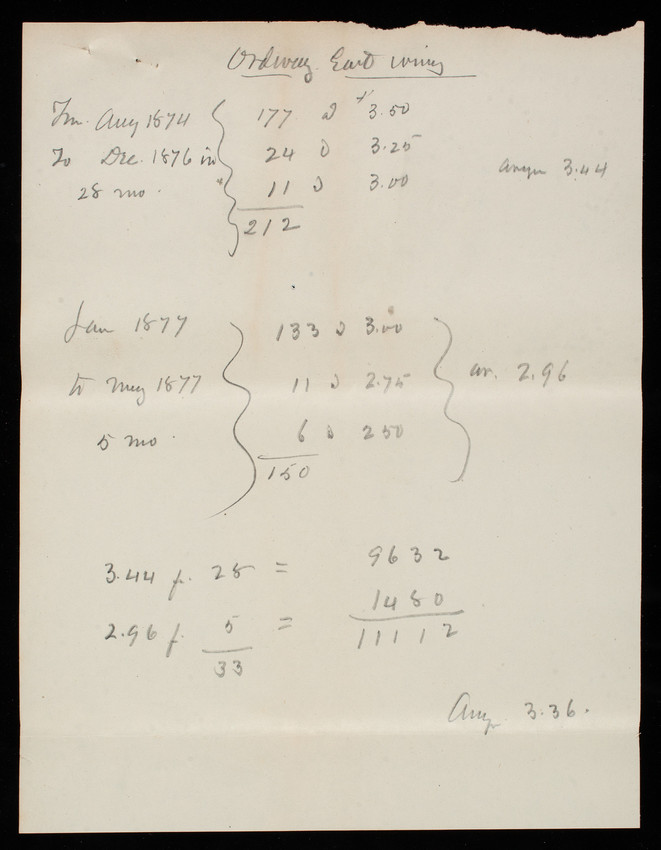 Ordway East wing
Fm. Aug 1874 177 @ $3.50
To Dec. 1876 in 24 @ 3.25
28 mo. 11 @ 3.00
212
3.44
Jan 1877 133 @ 3.00
to May 1877 11 @ 2.75
5 mo. 6 @ 2 50
150
av. 2.96
3.44 f. 28 = 9632
2.96 f. 5 = 1480
33 11112
3.36.